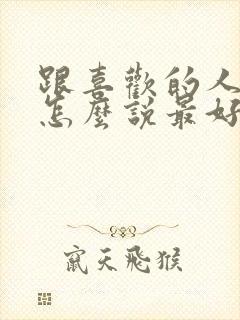 跟喜歡的人
怎麼說最好
竄天飛猴